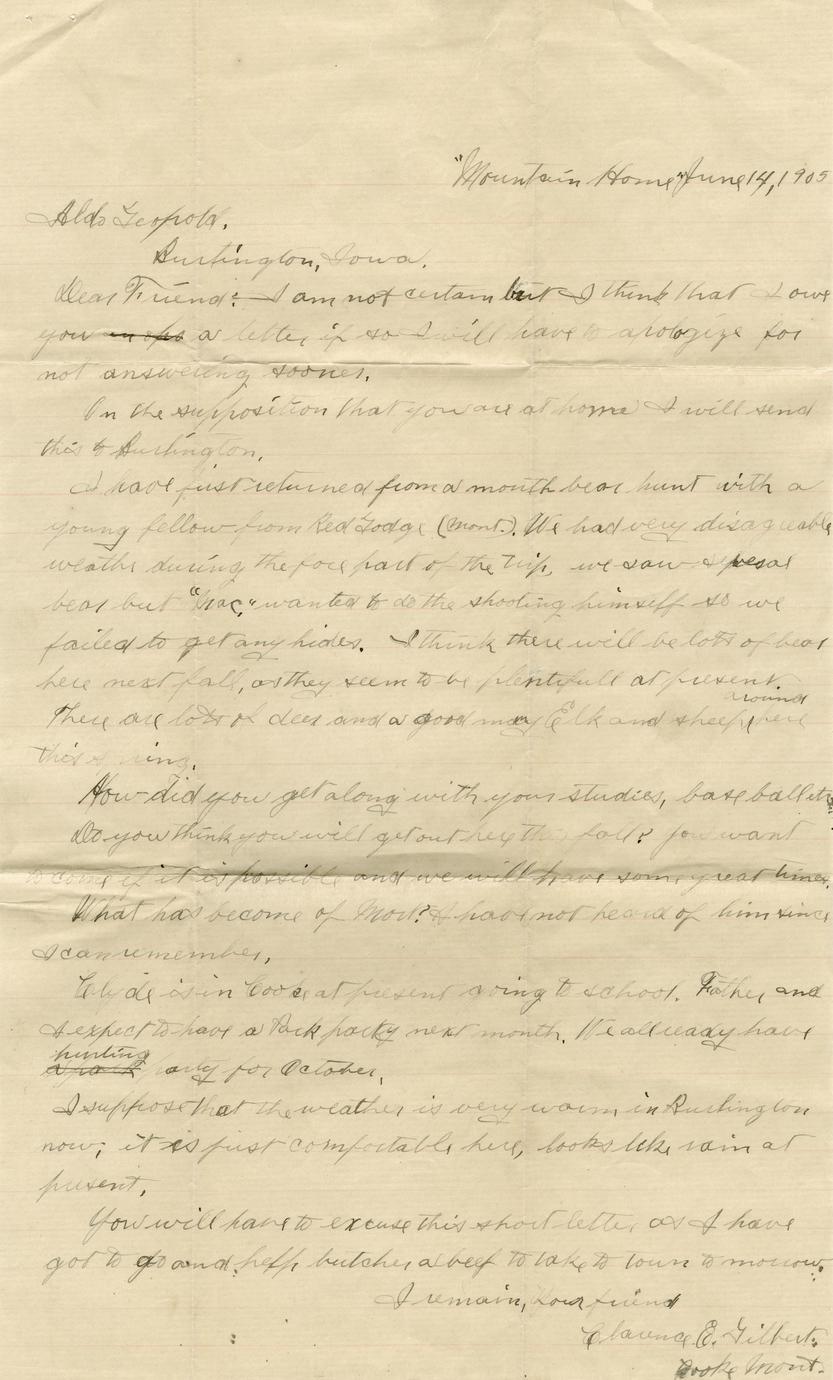 "Mountain Home" June 14, 1905
Aldo Leopold.
Burlington, Iowa.
Dear Friend:- I am not certain but I think that I owe
you a letter, if so I will have to apologize for
not answering sooner.
On the supposition that you are at home I will send
this to Burlington.
I have just returned from a month bear hunt with a
young fellow from Red Lodge (Mont.). We had very disagreeable
weather during the fore part of the trip, we saw several
bear but wanted to do the shooting himself so we
failed to get any hides. I think there will be lots of bear
here next fall, as they seem to be plentifull at present
There are lots of deer and a good many Elk and sheep around here
this spring.
How did you get along with your studies, base ball etc.
Do you think you will get out here this fall? You want
to come if it is possible and we will have some great times.
What has become of ? I have not heard of him since
I can remember.
Clyde is in Cooke at present going to school. Father, and
I expect to have a Park party next month. We allready have
a hunting party for October.
I suppose that the weather is very warm in Burlington
now; it is just comfortable here, looks like rain at
present.
You will have to excuse this short letter as I have
got to go and help butcher a beef to take to town to morrow.
I remain, Your friend
Clarence E. Gilbert.
Cooke Mont.